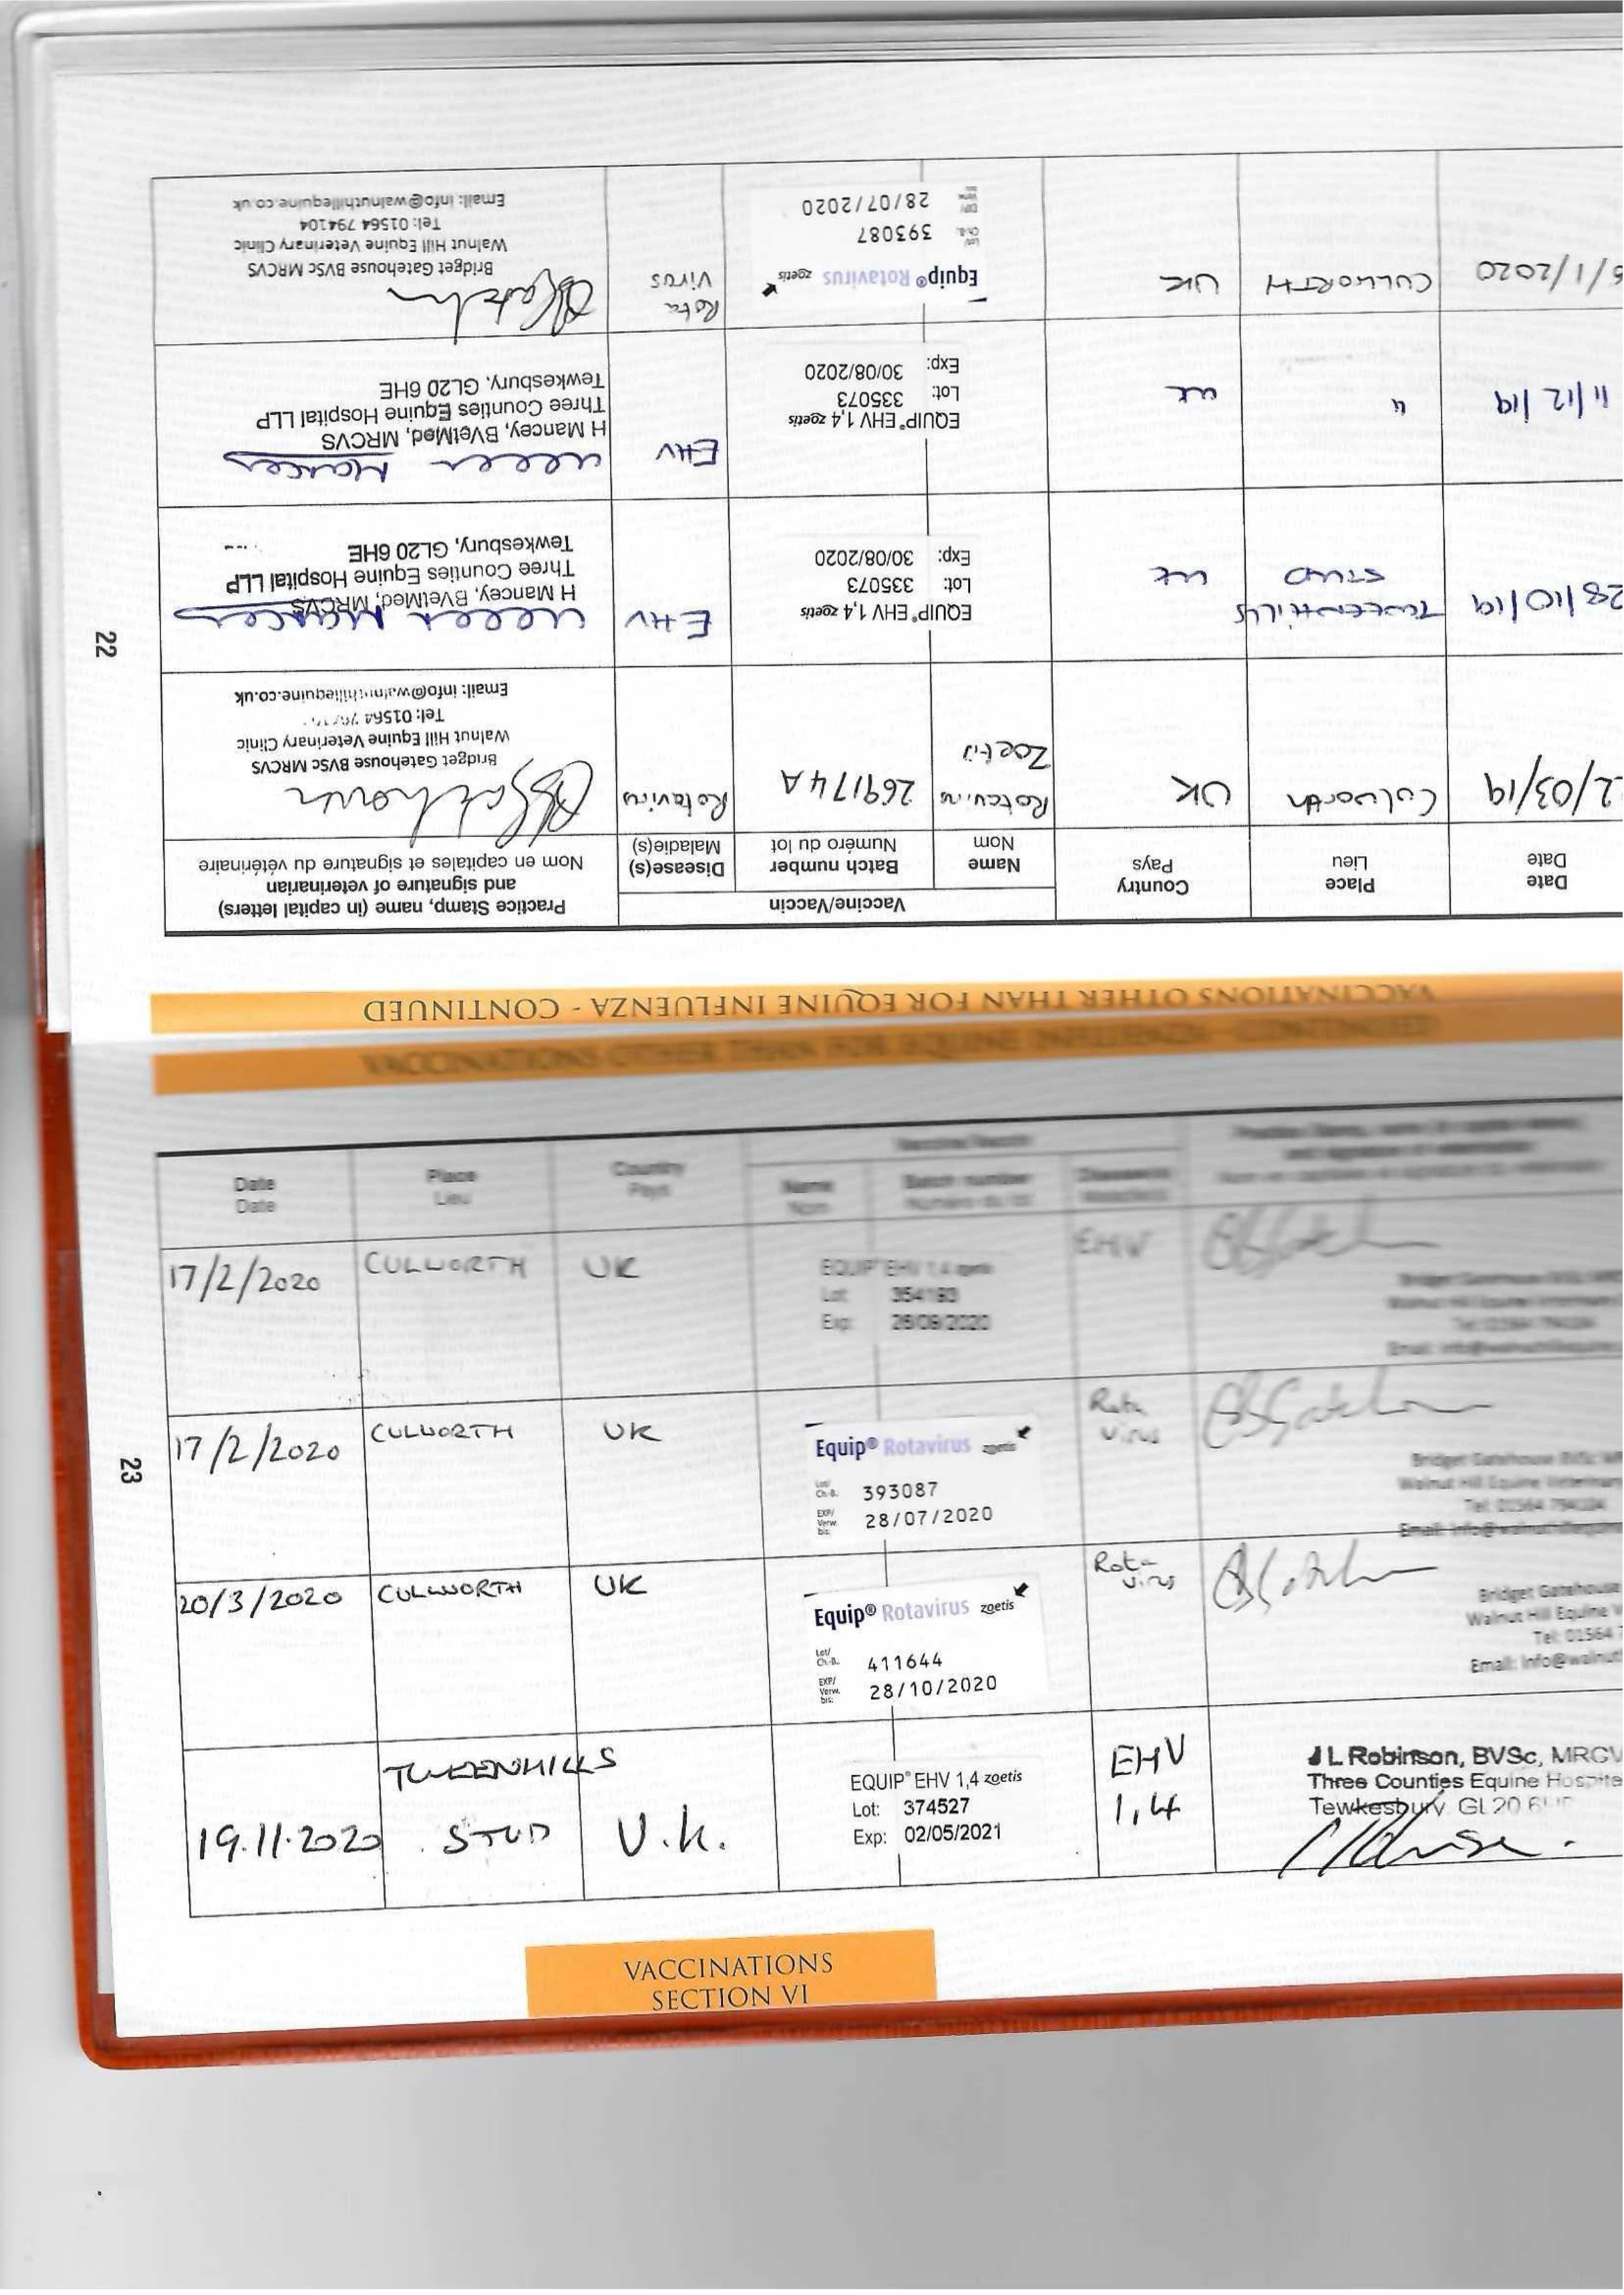 22
VACCINATIONS OTHER THAN FOR EQUINE INFLUENZA - CONTINUED
Date
Date
Place
Lieu
Country
Pays
Vaccine/Vaccin
Name
Nom
Batch number
Numéro du lot
Disease(s)
Maladie(s)
Practice Stamp, name (in capital letters)
and signature of veterinarian
Nom en capitales et signature du vétérinaire
2/03/19
Culworth
UK
Rotavirus
Zoetis
269174A
Rotavirus
Bridget Gatehouse BVSc MRCVS
Walnut Hill Equine Veterinary Clinic
Tel: 01564
Email: info@walnuthillequine.co.uk
28/10/19
TWEENHILLS
STUD
UK
EQUIP® EHV 1,4 zoetis
Lot: 335073
Exp: 30/08/2020
EHV
H Mancey, BVetMed, MRCVS
Three Counties Equine Hospital LLP
Tewkesbury, GL20 6HE
11/12/19
"
UK
EQUIP® EHV 1,4 zoetis
Lot: 335073
Exp: 30/08/2020
EHV
H Mancey, BVetMed, MRCVS
Three Counties Equine Hospital LLP
Tewkesbury, GL20 6HE
6/1/2020
CULWORTH
UK
Equip® Rotavirus zoetis
Lot/ Ch.-B. 393087
EXP/ Verw. bis: 28/07/2020
Rota
Virus
Bridget Gatehouse BVSc MRCVS
Walnut Hill Equine Veterinary Clinic
Tel: 01564 794104
Email: info@walnuthillequine.co.uk
VACCINATIONS OTHER THAN FOR EQUINE INFLUENZA - CONTINUED
23
Date
Date
Place
Lieu
Country
Pays
Name
Nom
Batch number
Numéro du lot
17/2/2020
CULWORTH
UK
EQUIP® EHV 1,4 zoetis
Lot: 354193
Exp: 26/09/2020
EHV
17/2/2020
CULWORTH
UK
Equip® Rotavirus zoetis
Lot/ Ch.-B. 393087
EXP/ Verw. bis: 28/07/2020
Rota
Virus
Bridget Gatehouse BVSc
Walnut Hill Equine Veterinary
Tel: 01564 794104
20/3/2020
CULWORTH
UK
Equip® Rotavirus zoetis
Lot/ Ch.-B. 411644
EXP/ Verw. bis: 28/10/2020
Rota
virus
Bridget Gatehouse
Walnut Hill Equine V
Tel: 01564 7
Email: info@walnut
19.11.2020
TWEENHILLS
STUD
U.K.
EQUIP® EHV 1,4 zoetis
Lot: 374527
Exp: 02/05/2021
EHV
1,4
J L Robinson, BVSc, MRCV
Three Counties Equine Hospita
Tewkesbury GL20 6H
VACCINATIONS
SECTION VI